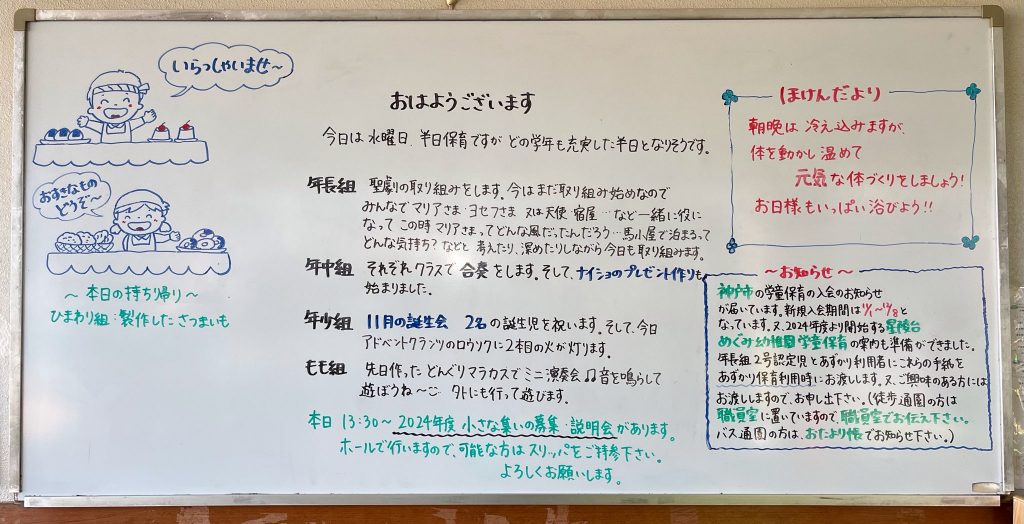 いらっしゃいませ～
おすきなもの
どうぞ～
～ 本日の持ち帰り ～
ひまわり組：製作したさつまいも
おはようございます
今日は 水曜日、半日保育ですが どの学年も充実した半日となりそうです。
年長組 聖劇の取り組みをします。今はまだ取り組み始めなので
みんなで マリアさま・ヨセフさま 又は天使・宿屋…など一緒に役に
なって この時 マリアさまってどんな風だったんだろう…馬小屋で泊まるって
どんな気持ち？などと 考えたり、深めたりしながら今日も取り組みます。
年中組 それぞれクラスで 合奏をします。そして、ナイショのプレゼント作りも
始まりました。
年少組 11月の誕生会 2名の誕生児を祝います。そして、今日
アドベントクランツのロウソクに2本目の火が灯ります。
もも組 先日作った どんぐりマラカスでミニ演奏会♫音を鳴らして
遊ぼうね～ 外にも行って遊びます。
本日 13:30～ 2024年度 小さな集いの募集・説明会があります。
ホールで行いますので、可能な方はスリッパをご持参下さい。
よろしくお願いします。
ほけんだより
朝晩は 冷え込みますが、
体を動かし 温めて
元気な体づくりをしましょう！
お日様もいっぱい浴びよう!!
～お知らせ～
神戸市の学童保育の入会のお知らせ
が届いています。新規入会期間は12/1～12/8と
なっています。又、2024年度より開始する星陵台
めぐみ幼稚園学童保育の案内も準備ができました。
年長組2号認定児とあずかり利用者にこれらの手紙を
あずかり保育利用時にお渡します。又、ご興味のある方には
お渡ししますので、お申し出下さい。(徒歩通園の方は
職員室に置いていますので、職員室でお伝え下さい。
バス通園の方は、おたより帳でお知らせ下さい。)